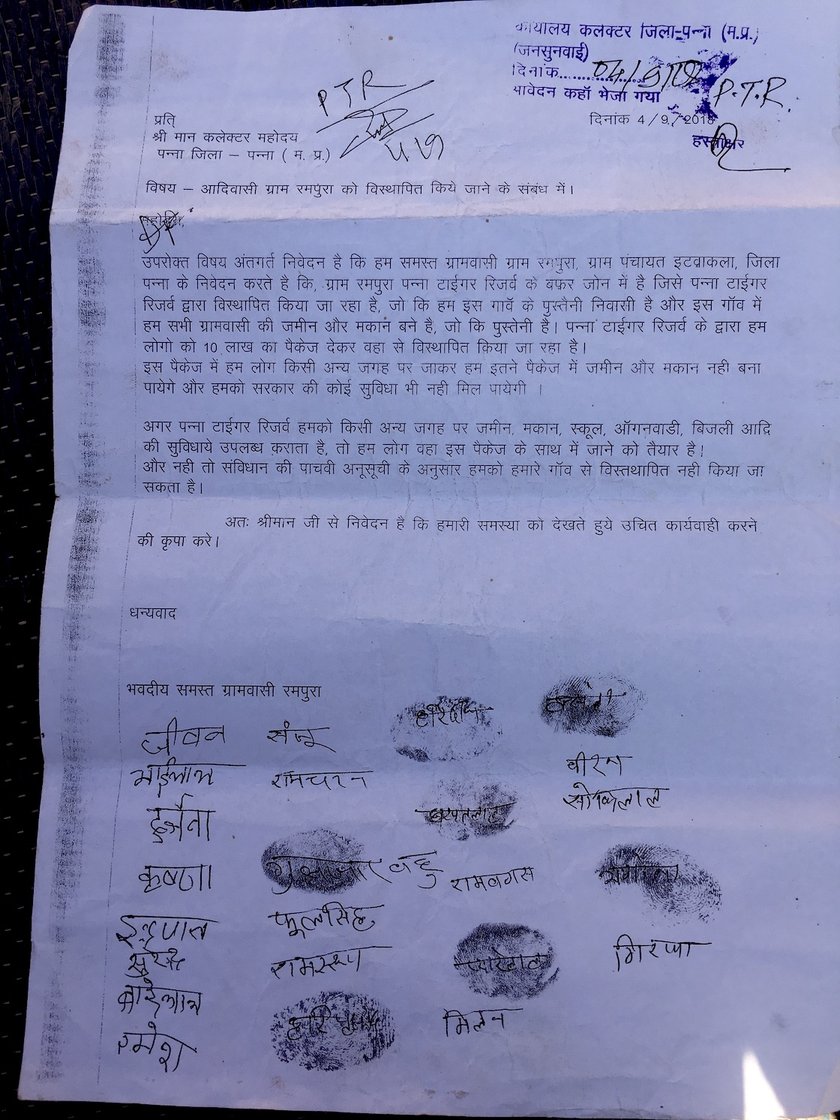 कार्यालय कलेक्टर जिला-पन्ना (म.प्र.)
(जनसुनवाई)
दिनांक.......... 04/9/18
आवेदन कहॉ भेजा गया P.T.R.
हस्ताक्षर
P T R
प्रति
दिनांक 4/9/2018
श्री मान कलेक्टर महोदय
पन्ना जिला – पन्ना ( म. प्र.)
विषय – आदिवासी ग्राम रमपुरा को विस्थापित किये जाने के संबंध में।
उपरोक्त विषय अंतगर्त निवेदन है कि हम समस्त ग्रामवासी ग्राम रमपुरा, ग्राम पंचायत इटवाकला, जिला
पन्ना के निवेदन करते है कि, ग्राम रमपुरा पन्ना टाईगर रिजर्व के बफर जोन में है जिसे पन्ना टाईगर
रिजर्व द्वारा विस्थापित किया जा रहा है, जो कि हम इस गावॅ के पुस्तेनी निवासी है और इस गॉव में
हम सभी ग्रामवासी की जमीन और मकान बने है, जो कि पुस्तेनी है। पन्ना टाईगर रिजर्व के द्वारा हम
लोगो को 10 लाख का पैकेज देकर वहा से विस्थापित किया जा रहा है।
इस पैकेज में हम लोग किसी अन्य जगह पर जाकर हम इतने पैकेज में जमीन और मकान नही बना
पायेगे और हमको सरकार की कोई सुविधा भी नही मिल पायेगी ।
अगर पन्ना टाईगर रिजर्व हमको किसी अन्य जगह पर जमीन, मकान, स्कूल, ऑगनवाडी, बिजली आदि
की सुविधाये उपलब्ध कराता है, तो हम लोग वहा इस पैकेज के साथ में जाने को तैयार है।
और नही तो संविधान की पाचवी अनूसूची के अनुसार हमको हमारे गॉव से विस्तथापित नही किया जा
सकता है।
अतः श्रीमान जी से निवेदन है कि हमारी समस्या को देखते हुये उचित कार्यवाही करने
की कृपा करे।
धन्यवाद
भवदीय समस्त ग्रामवासी रमपुरा
जीवन संजू
रामचरन वीरन
कृष्णा रामवगस
फूलसिंह
रामस्वरूप
मिलन
रमेश